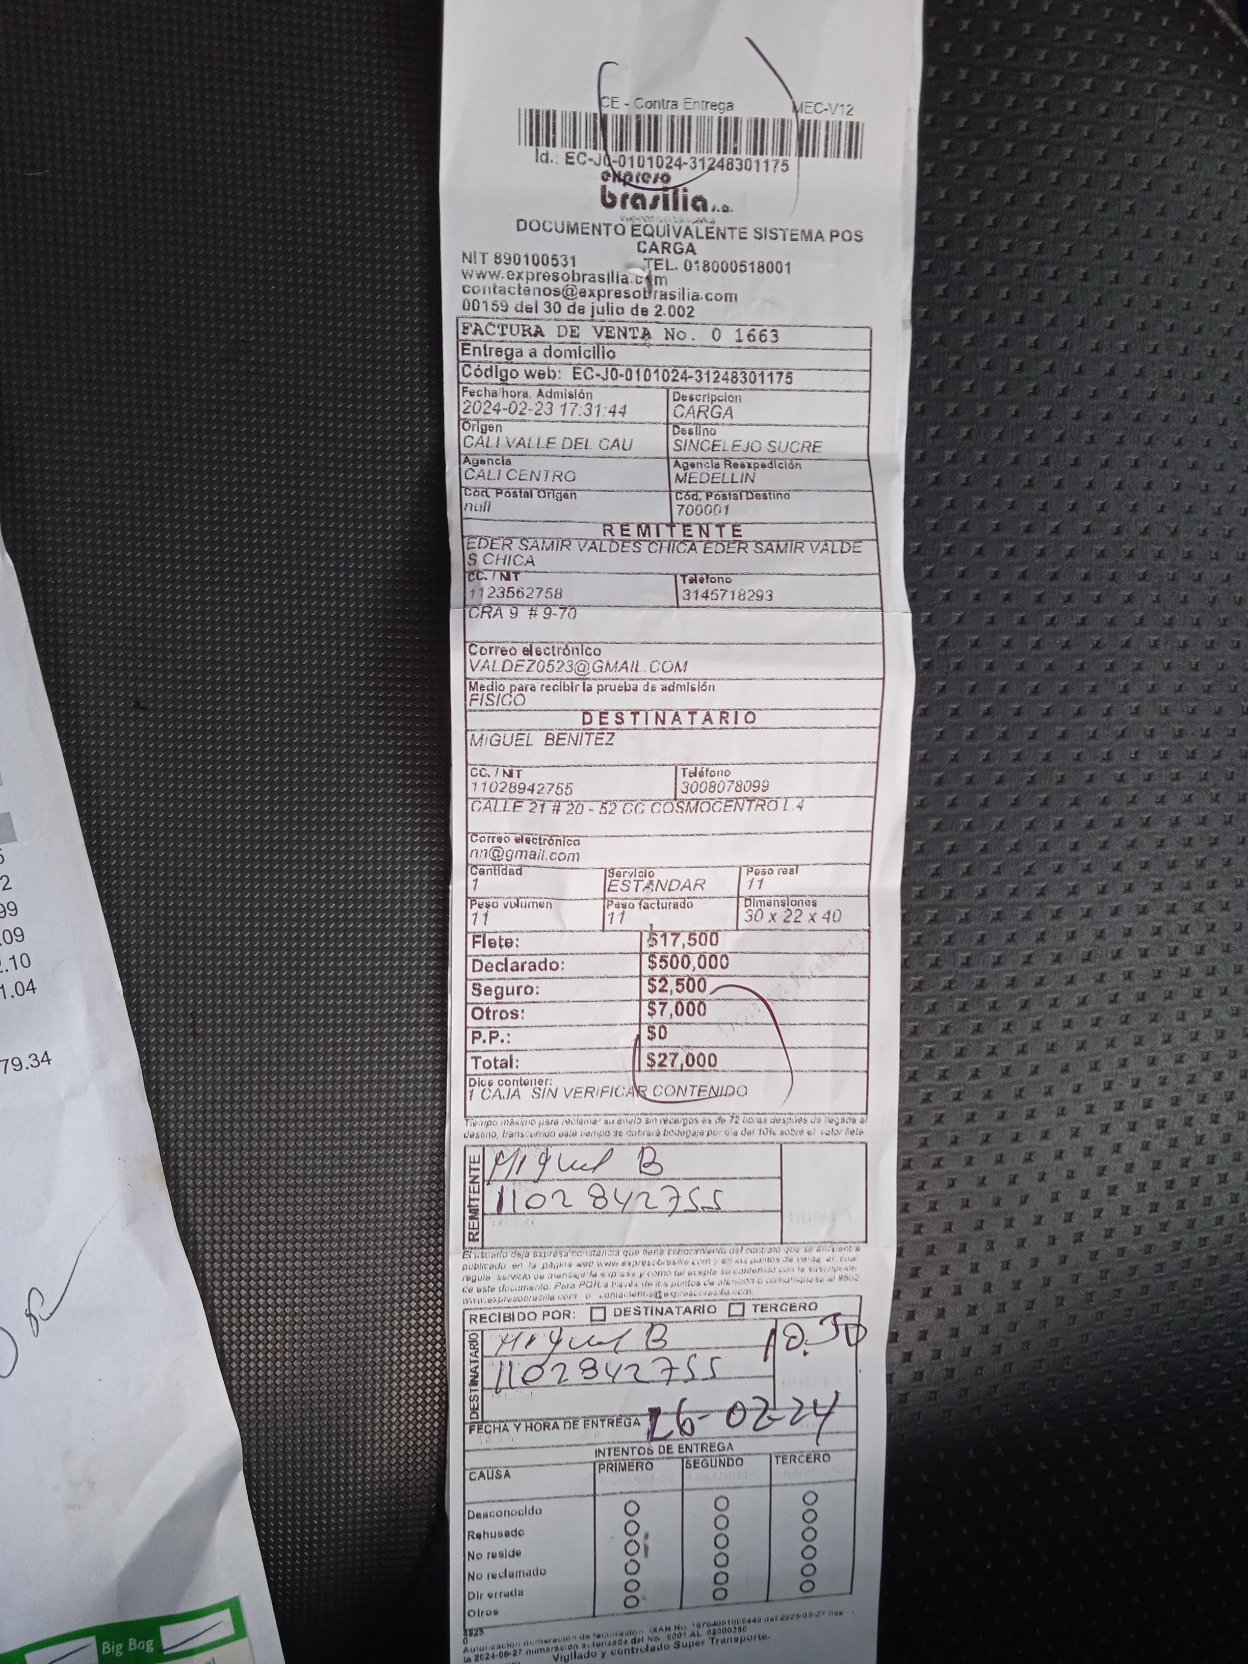 CE - Contra Entrega MEC-V12
Id.: EC-J0-0101024-31248301175
expreso
brasilia s.a.
DOCUMENTO EQUIVALENTE SISTEMA POS
CARGA
NIT 890100531 TEL. 018000518001
www.expresobrasilia.com
contactenos@expresobrasilia.com
00159 del 30 de julio de 2.002
FACTURA DE VENTA No. 0 1663
Entrega a domicilio
Código web: EC-J0-0101024-31248301175
Fecha/hora. Admisión Descripcion
2024-02-23 17:31:44 CARGA
Origen Destino
CALI VALLE DEL CAU SINCELEJO SUCRE
Agencia Agencia Reexpedición
CALI CENTRO MEDELLIN
Cód. Postal Origen Cód. Postal Destino
null 700001
REMITENTE
EDER SAMIR VALDES CHICA EDER SAMIR VALDE
S CHICA
CC. / NIT Teléfono
1123562758 3145718293
CRA 9 # 9-70
Correo electrónico
VALDEZ0523@GMAIL.COM
Medio para recibir la prueba de admisión
FISICO
DESTINATARIO
MIGUEL BENITEZ
CC. / NIT Teléfono
11028942755 3008078099
CALLE 21 # 20 - 52 CC COSMOCENTRO L.4
Correo electrónico
nn@gmail.com
Cantidad Servicio Peso real
1 ESTANDAR 11
Peso volumen Peso facturado Dimensiones
11 11 30 x 22 x 40
Flete: $17,500
Declarado: $500,000
Seguro: $2,500
Otros: $7,000
P.P.: $0
Total: $27,000
Dice contener:
1 CAJA SIN VERIFICAR CONTENIDO
Tiempo máximo para reclamar su envío sin recargos es de 72 horas despúes de llegada al
destino, transcurrido este tiempo se cobrará bodegaje por día del 10% sobre el valor flete
REMITENTE
Miguel B
1102842755
El usuario deja expresa constancia que tiene conocimiento del contrato que se encuentra
publicado en la página web www.expresobrasilia.com y en los puntos de venta, el cual
regula servicio de mensajería expresa y como tal acepta su contenido con la suscripción
de este documento. Para PQR a través de los puntos de atención o comuníquese al
www.expresobrasilia.com o contactenos@expresobrasilia.com.
RECIBIDO POR: DESTINATARIO TERCERO
DESTINATARIO
Miguel B 10.30
1102842755
FECHA Y HORA DE ENTREGA 26-02-24
INTENTOS DE ENTREGA
CAUSA PRIMERO SEGUNDO TERCERO
Desconocido
Rehusado
No reside
No reclamado
Dir errada
Otros
Autorizacion numeracion de facturacion
la 2024-06-27 numeración autorizada del No. 0001 AL
Vigilado y controlado Super Transporte.
2
99
.09
.10
1.04
79.34
Big Bag